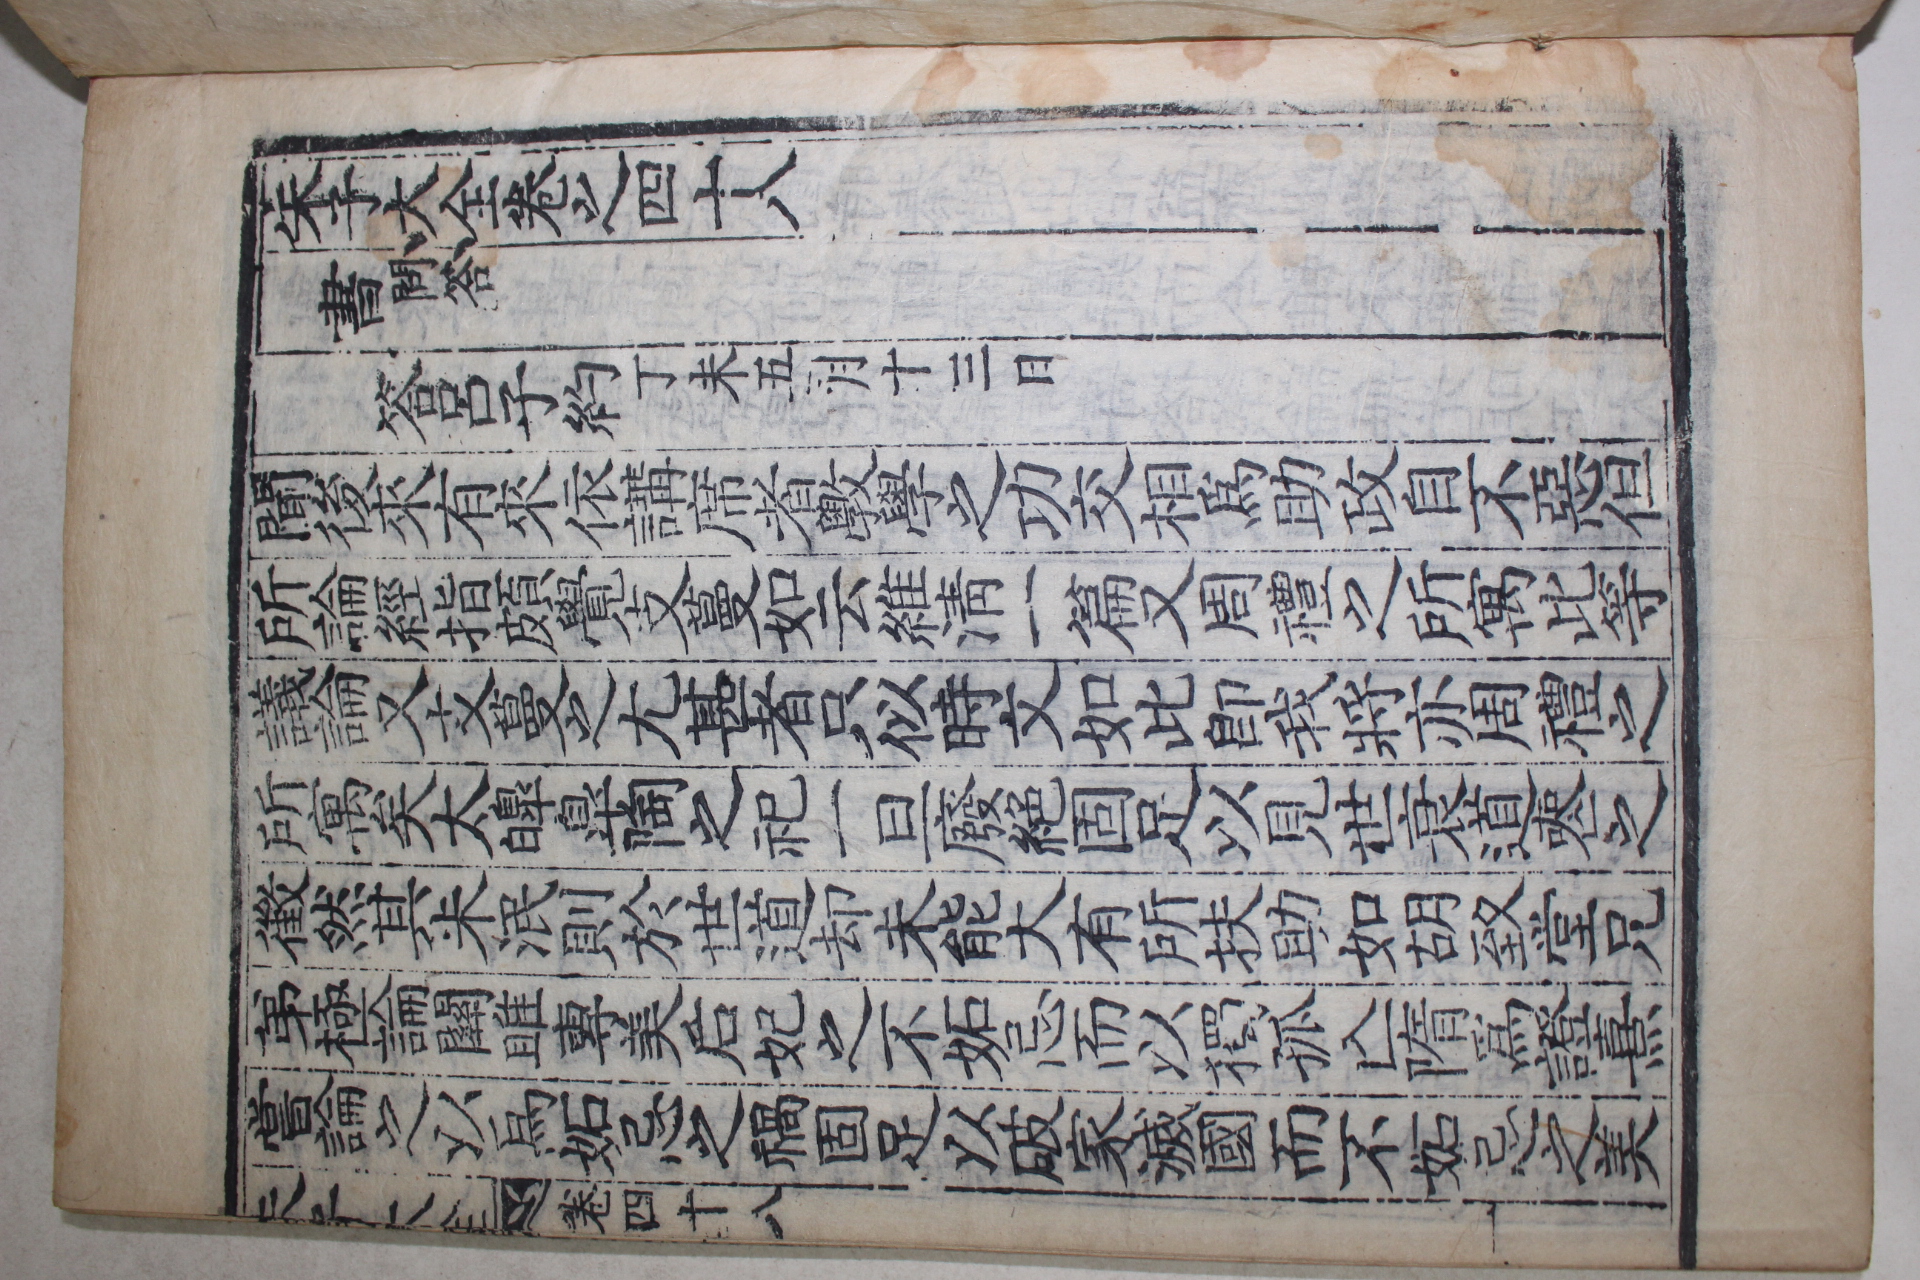 朱子大全卷之四十八
書問答
答呂子約丁未五月十三日
聞後來有來依講席者斆學之功交相爲助政自不惡但
所論經指頗覺支蔓如云維淸一篇又周禮之所寓此等
議論又支蔓之尤甚者只似時文如此卽我將亦周禮之
所寓矣太皥皐陶之祀一旦廢絶固足以見世衰道喪之
徵然其未泯則於世道却未能大有所扶助如胡致堂兄
弟極論關雎專美后妃之不妬忌而以獨孤亾隋爲證熹
嘗論之以爲妬忌之禍固足以破家滅國而不妬忌之美
朱子大全 卷四十八 一